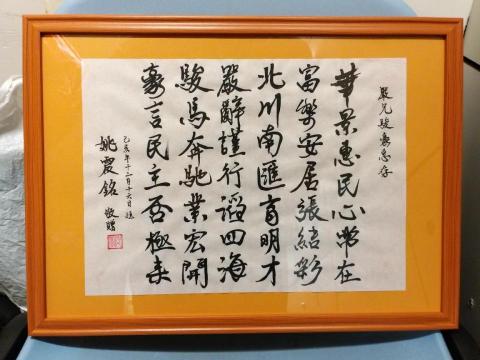 嚴兄駿豪惠存
華景惠民心常在
富樂安居張結彩
北川南匯育明才
嚴辭謹行四海
駿馬奔馳業宏開
豪言民主否極來
己亥年十二月十六日
姚震銘 敬贈